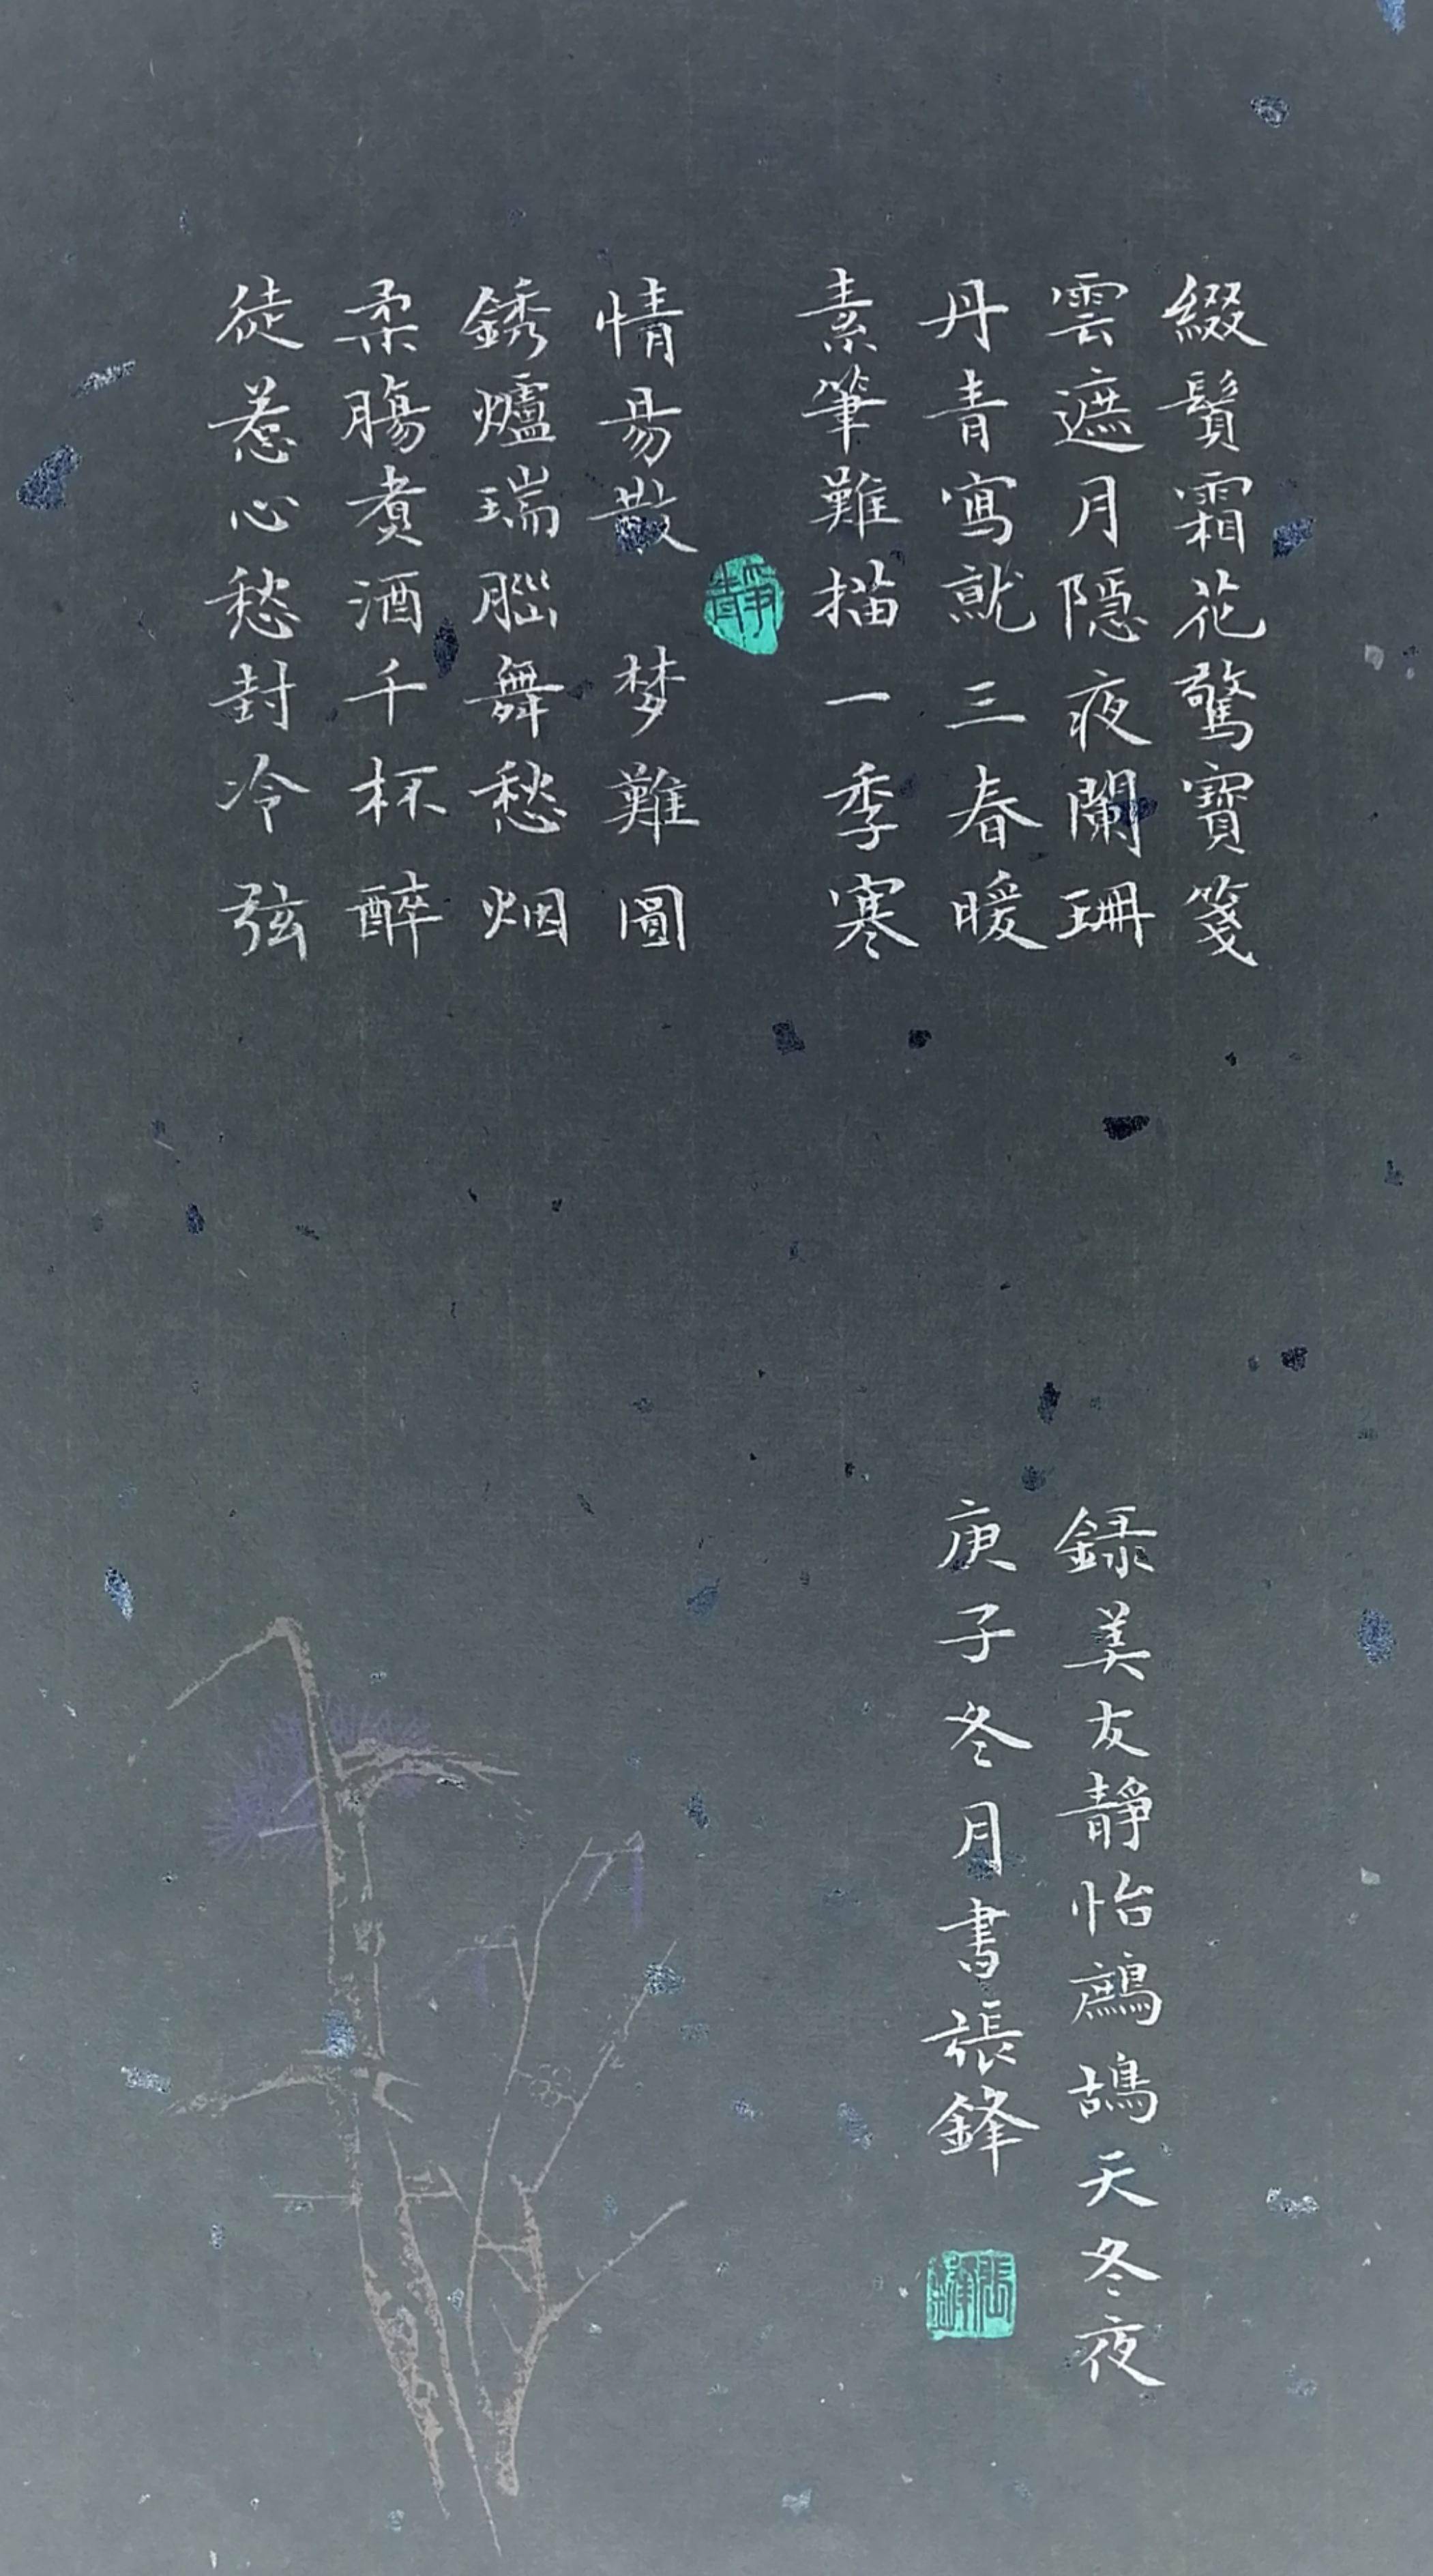 綴鬢霜花驚寶箋
雲遮月隱夜闌珊
丹青寫就三春暖
素筆難描一季寒
靜
情易散 梦難圖
銹爐瑞腦舞愁烟
柔腸煮酒千杯醉
徒惹心愁封冷弦
録美友靜怡鷓鴣天冬夜
庚子冬月書張鋒
張鋒